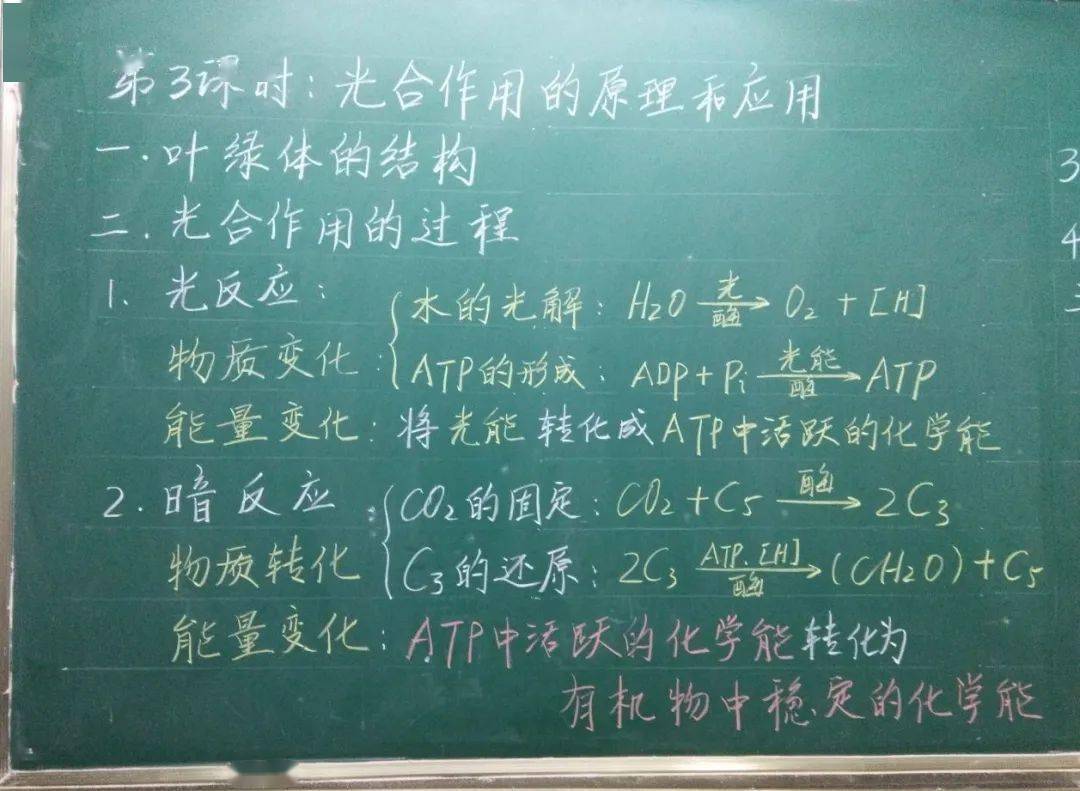 第3课时:光合作用的原理和应用
一.叶绿体的结构
二.光合作用的过程
1. 光反应:
水的光解:H2O 光 酶 → O2+[H]
物质变化:
ATP的形成:ADP+Pi 光能 酶 → ATP
能量变化:将光能转化成ATP中活跃的化学能
2.暗反应
CO2的固定:CO2+C5 酶 → 2C3
物质转化
C3的还原:2C3 ATP.[H] 酶 → (CH2O)+C5
能量变化:ATP中活跃的化学能转化为
有机物中稳定的化学能
3
4